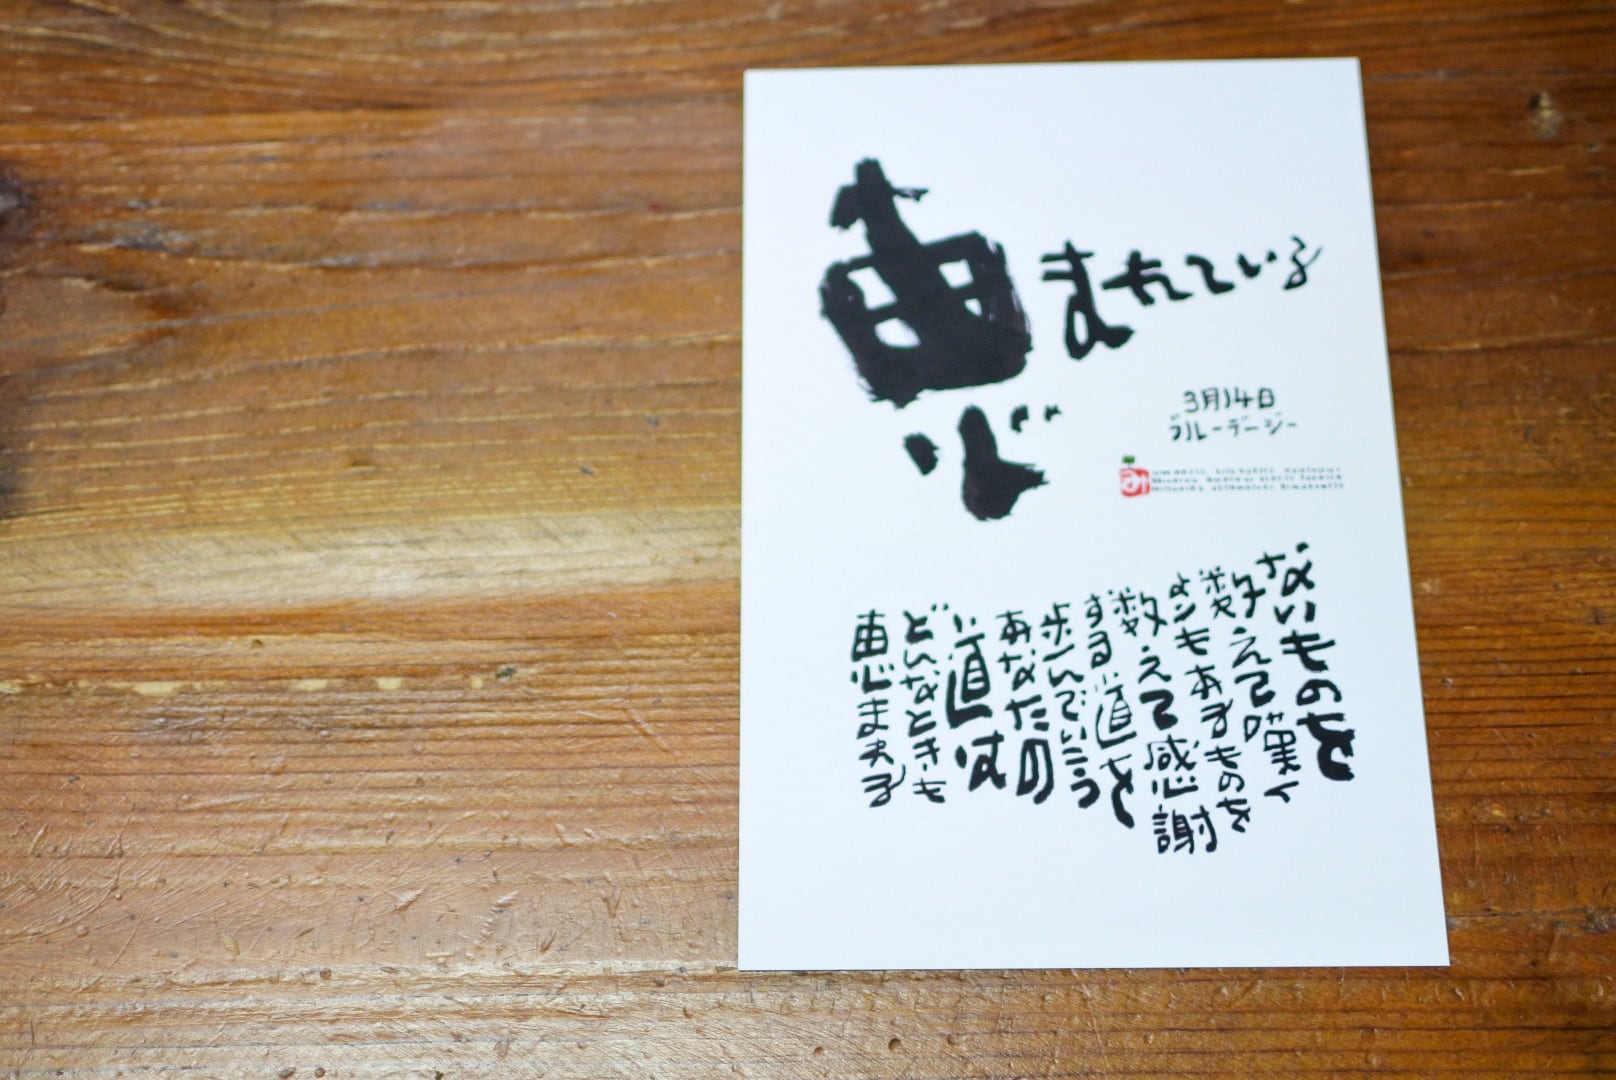 恵まれている
3月14日
ブルーデージー
み
ないものを
数えて嘆く
よりもあるものを
数えて感謝
する道を
歩んでいこう
あなたの
道は
どんなときも
恵まれる